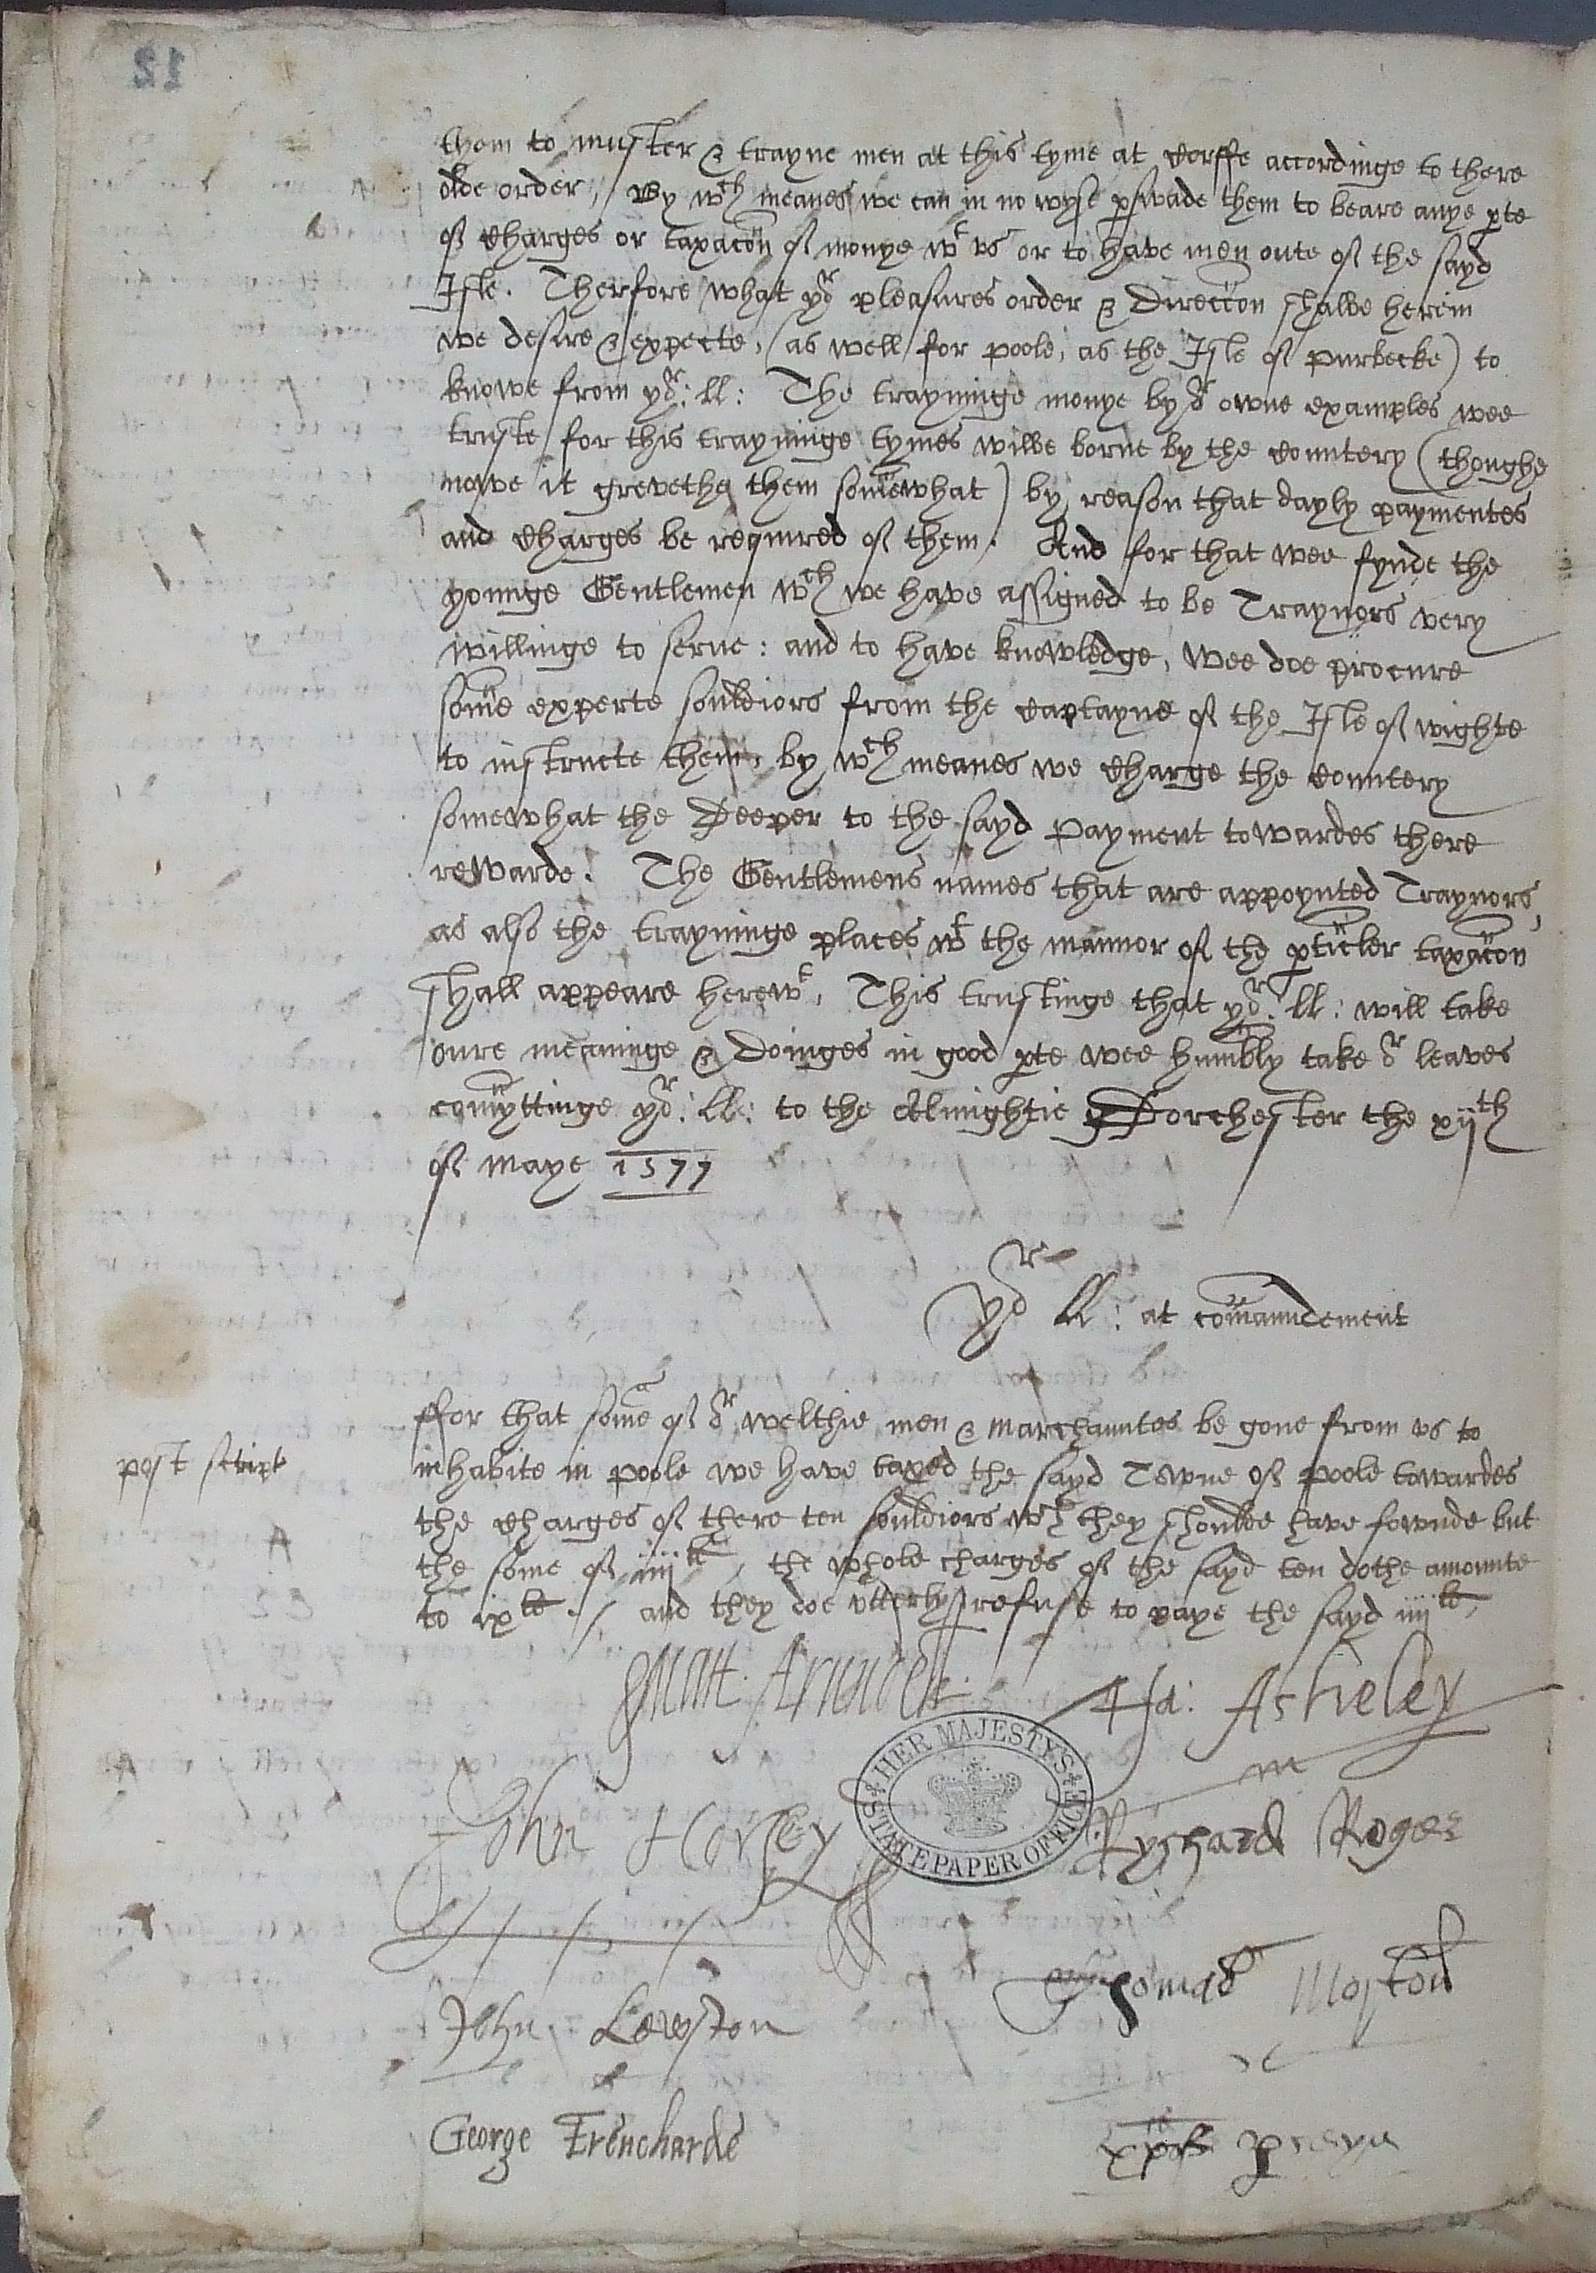 12
them to muster & trayne men at this tyme at Corffe accordinge to there
olde order, By wch meanes we can in no wyse pswade them to beare anye pte
of Charges or taxacon of monye wt vs or to have men oute of the sayd
Isle. Therfore what yor pleasures order & Direccon shalbe herein
we desire & expecte, (as well for poole, as the Isle of purbecke) to
knowe from yor: ll: The trayninge monye by or owne examples wee
truste for this trayninge tymes wilbe borne by the Countery (thoughe
nowe it grevethe them somewhat) by reason that dayly paymentes
and Charges be required of them. And for that wee fynde the
younge Gentlemen wch we have assigned to be Traynors very
willinge to serue: and to have knowledge, Wee doe procure
some experte souldiors from the Captayne of the Isle of wighte
to instructe them, by wch meanes we Charge the Countery
somewhat the Deeper to the sayd Payment towardes there
rewarde. The Gentlemens names that are appoynted Traynors,
as also the trayninge places wt the manner of the pticler taxacon
shall appeare herewt, This trustinge that yor: ll: will take
oure meaninge & Doinges in good pte wee humbly take or leaves
comyttinge yor: ll: to the Almightie Dorchester the xijth
of Maye 1577
yor ll: at comaundement
post script
ffor that some of or welthie men & marchauntes be gone from vs to
inhabite in poole we have taxed the sayd Towne of Poole towardes
the Charges of there ten souldiors wch they shoulde have fownde but
the some of iiijli, the whole charges of the sayd ten dothe amounte
to ixli. / and they doe vtterly refuse to paye the sayd iiijli,
Matt. Arundell. Ha: Asheley
HER MAJESTY'S STATE PAPER OFFICE
John Horsey Rychard Roger
John Lewston Thomas Morton
George Trencharde xpo